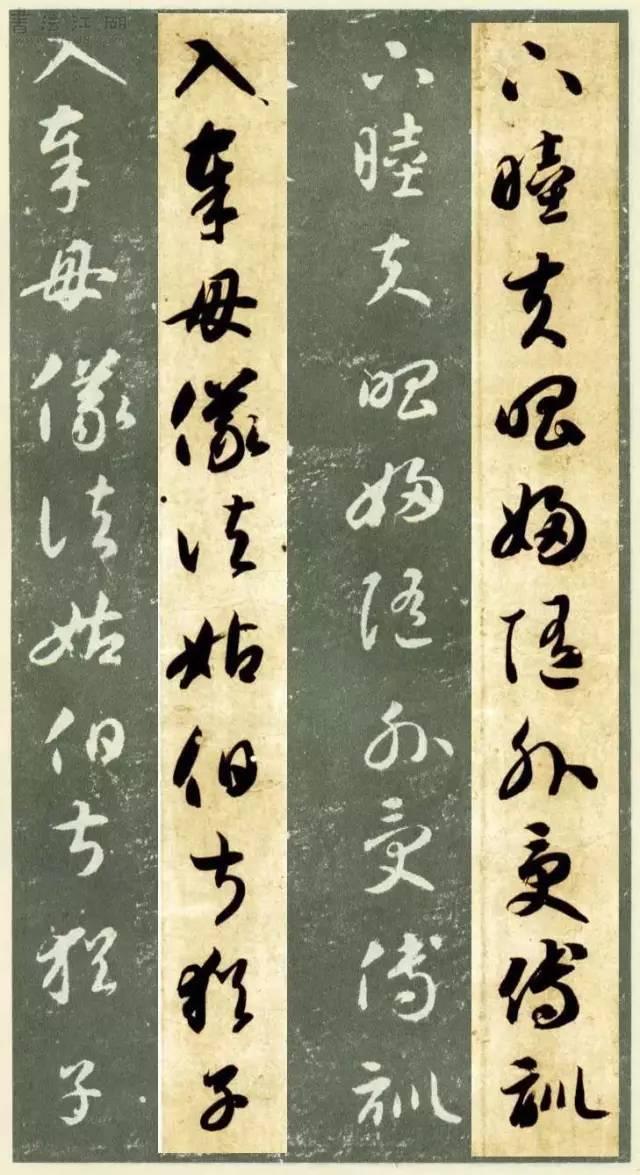 下睦夫唱婦隨外受傅訓
下睦夫唱婦隨外受傅訓
入奉母儀諸姑伯叔猶子
入奉母儀諸姑伯叔猶子
書法江湖